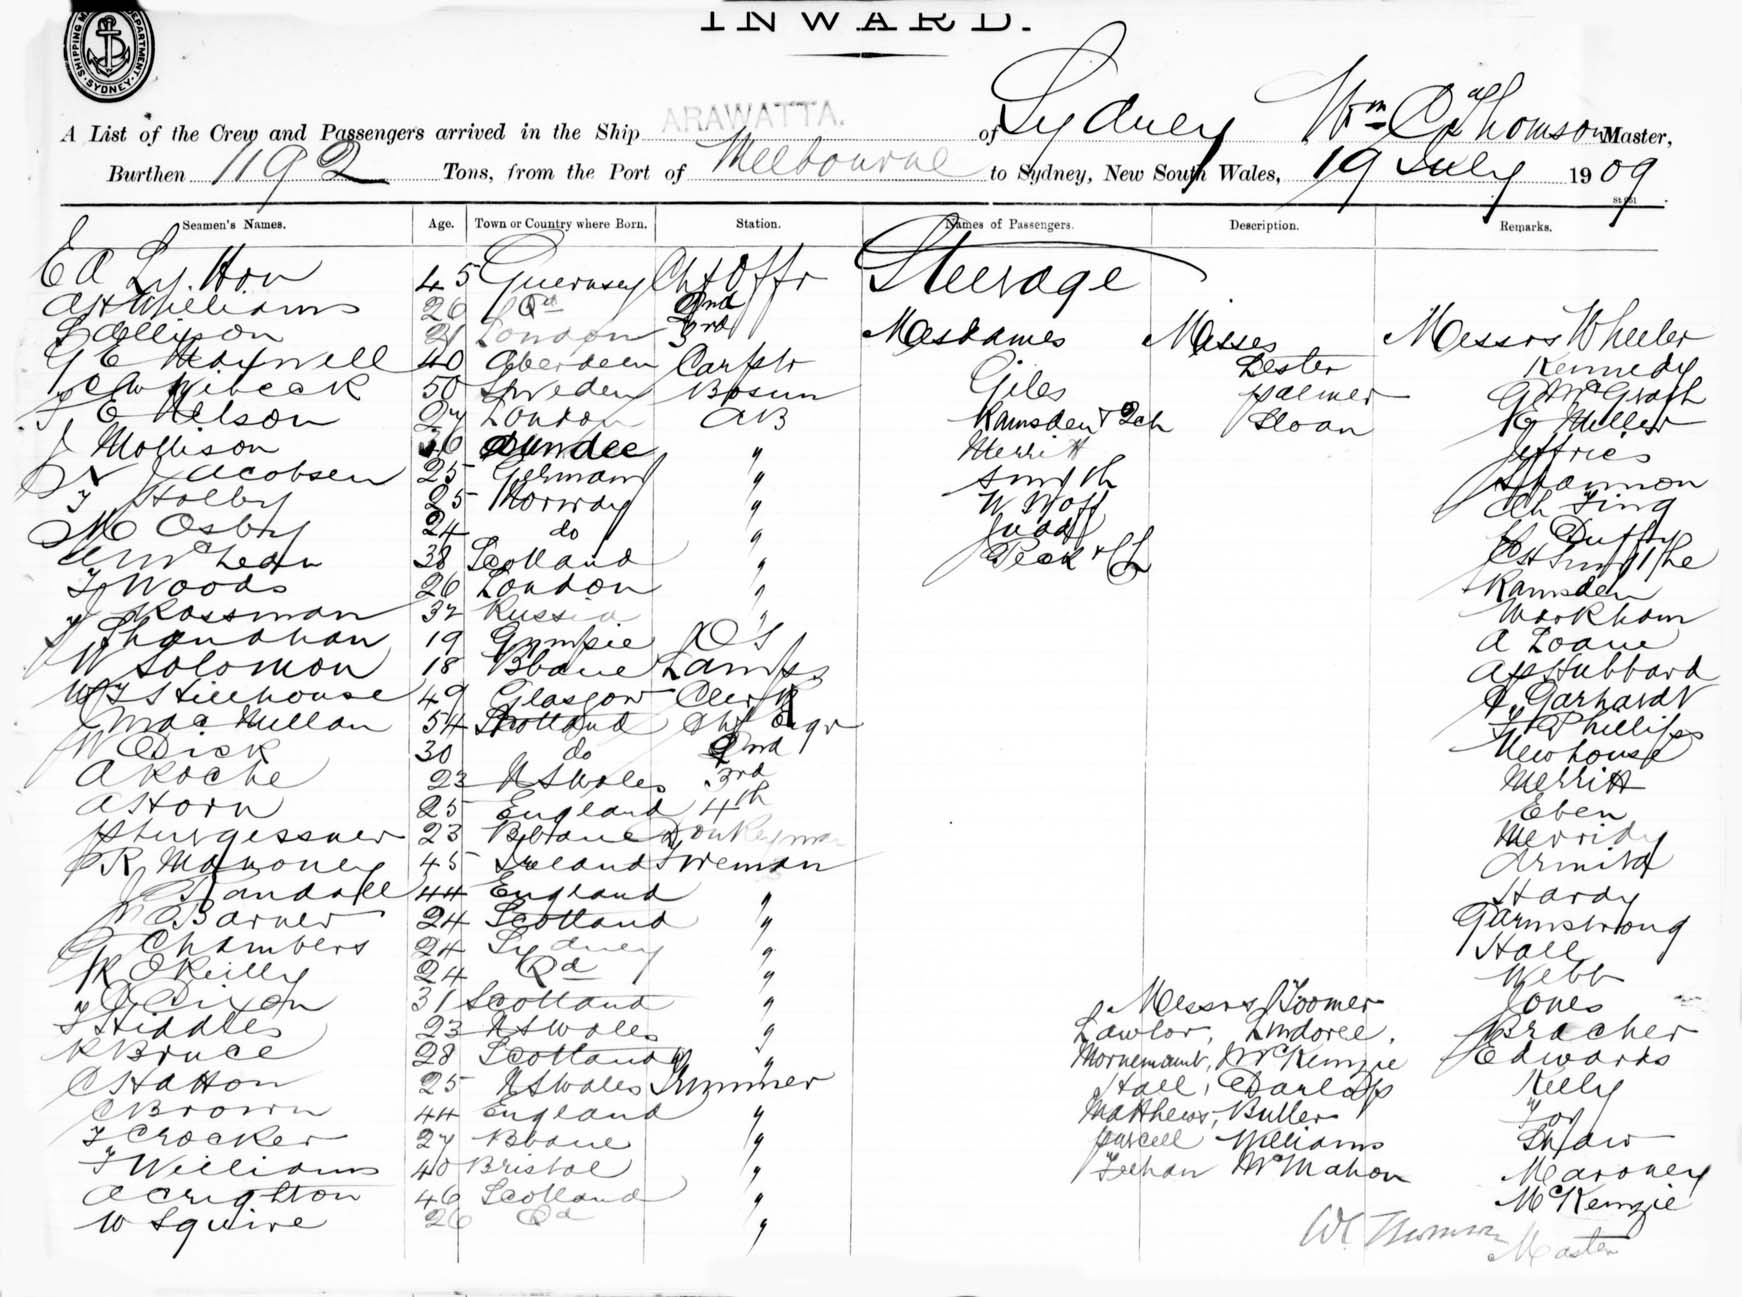 INWARD.
SHIPPING DEPARTMENT SYDNEY
A List of the Crew and Passengers arrived in the Ship ARAWATTA. of Sydney Wm C Thomson Master,
Burthen 1192 Tons, from the Port of Melbourne to Sydney, New South Wales, 19 July 1909
Seamen's Names. Age. Town or Country where Born. Station. Names of Passengers. Description. Remarks.
45 Guernsey Ch Offr Steerage
A H Williams 26 Qd 2nd
Ellison 21 London 3rd Mesdames Misses Messrs Wheeler
G E Maxwell 40 Aberdeen Carptr Giles Lester Kennedy
50 Sweden Bosun Palmer G McGrath
E Nelson 27 London AB Ramsden & 2ch Sloan Miller
J Mollison 26 Dundee " Merritt Jeffries
N Jacobsen 25 Germany " Smyth Shannon
T Holby 25 Norway " W Ah Ting
M Osby 24 do " Judd Duffy
McLean 38 Scotland " Peck & Ch
T Woods 26 London " Ramsden
J Rossman 32 Russia " Workham
Shanahan 19 Gympie OS A Loane
W Solomon 18 Bbane Lamps Hubbard
W T Stillhouse 49 Glasgow Clerk Garhardt
J MacMillan 54 Scotland Ch Engr Phillips
W Dick 30 do 2nd Newhouse
A Roche 23 NSWales 3rd Merritt
A Horn 25 England 4th Eben
Sturgessner 23 Bbane Donkeyman Merridy
R Mahoney 45 Ireland Fireman
J Randall 44 England " Hardy
W Barner 24 Scotland " G Armstrong
G Chambers 24 Sydney " Hall
R O'Reilly 24 Qd " Webb
Dixon 31 Scotland " Messrs Toomer Jones
T Hiddles 23 NSWales " Lawlor, Bracher
R Bruce 28 Scotland " McKenzie Edwards
C Hatton 25 NSWales Trimmer Hall, Dunlop Kelly
C Brown 44 England " Matthews, Butler Foy
T Crocker 27 Bbane " Purcell Williams Shaw
T Williams 40 Bristol " Feehan McMahon Maroney
A Crighton 46 Scotland " McKenzie
W Squire 26 Qd "
WC Thomson Master